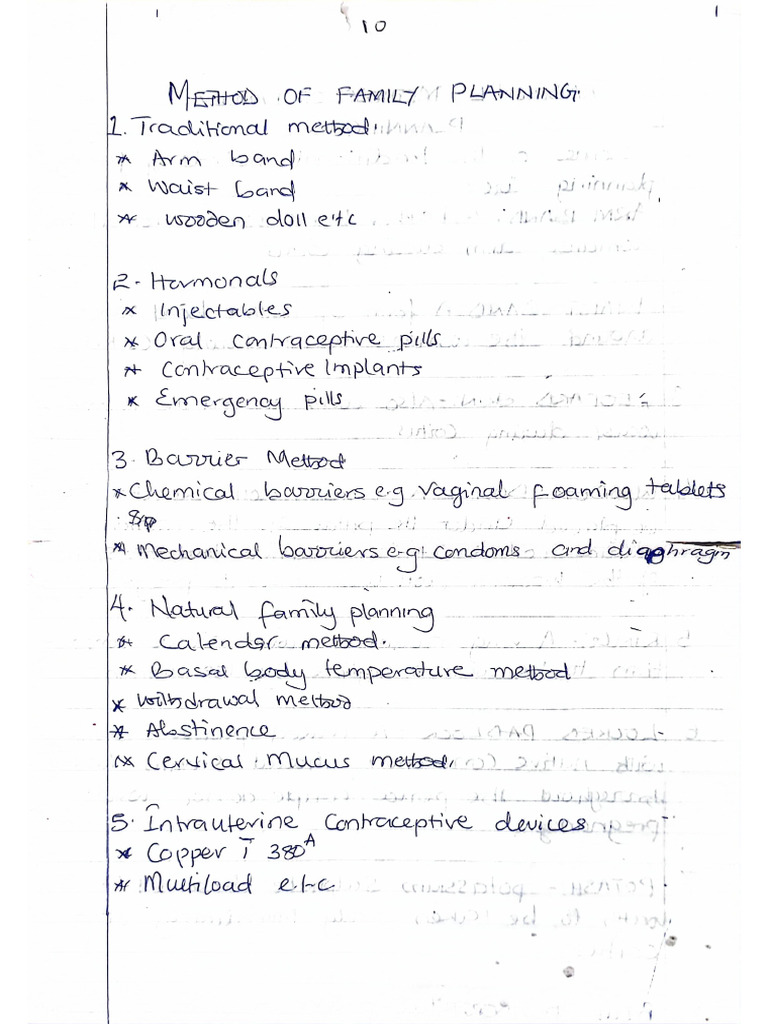 10
METHOD OF FAMILY PLANNING.
1. Traditional method.
* Arm band
* Waist band
* wooden doll etc
2. Hormonals
* Injectables
* Oral contraceptive pills
* Contraceptive Implants
* Emergency pills
3. Barrier Method
* Chemical barriers e.g vaginal foaming tablets
* Mechanical barriers e.g condoms and diaphragm
4. Natural family planning
* Calender method.
* Basal body temperature method
* withdrawal method
* Abstinence
* Cervical Mucus method.
5. Intrauterine Contraceptive devices
* Copper T 380A
* Multiload etc